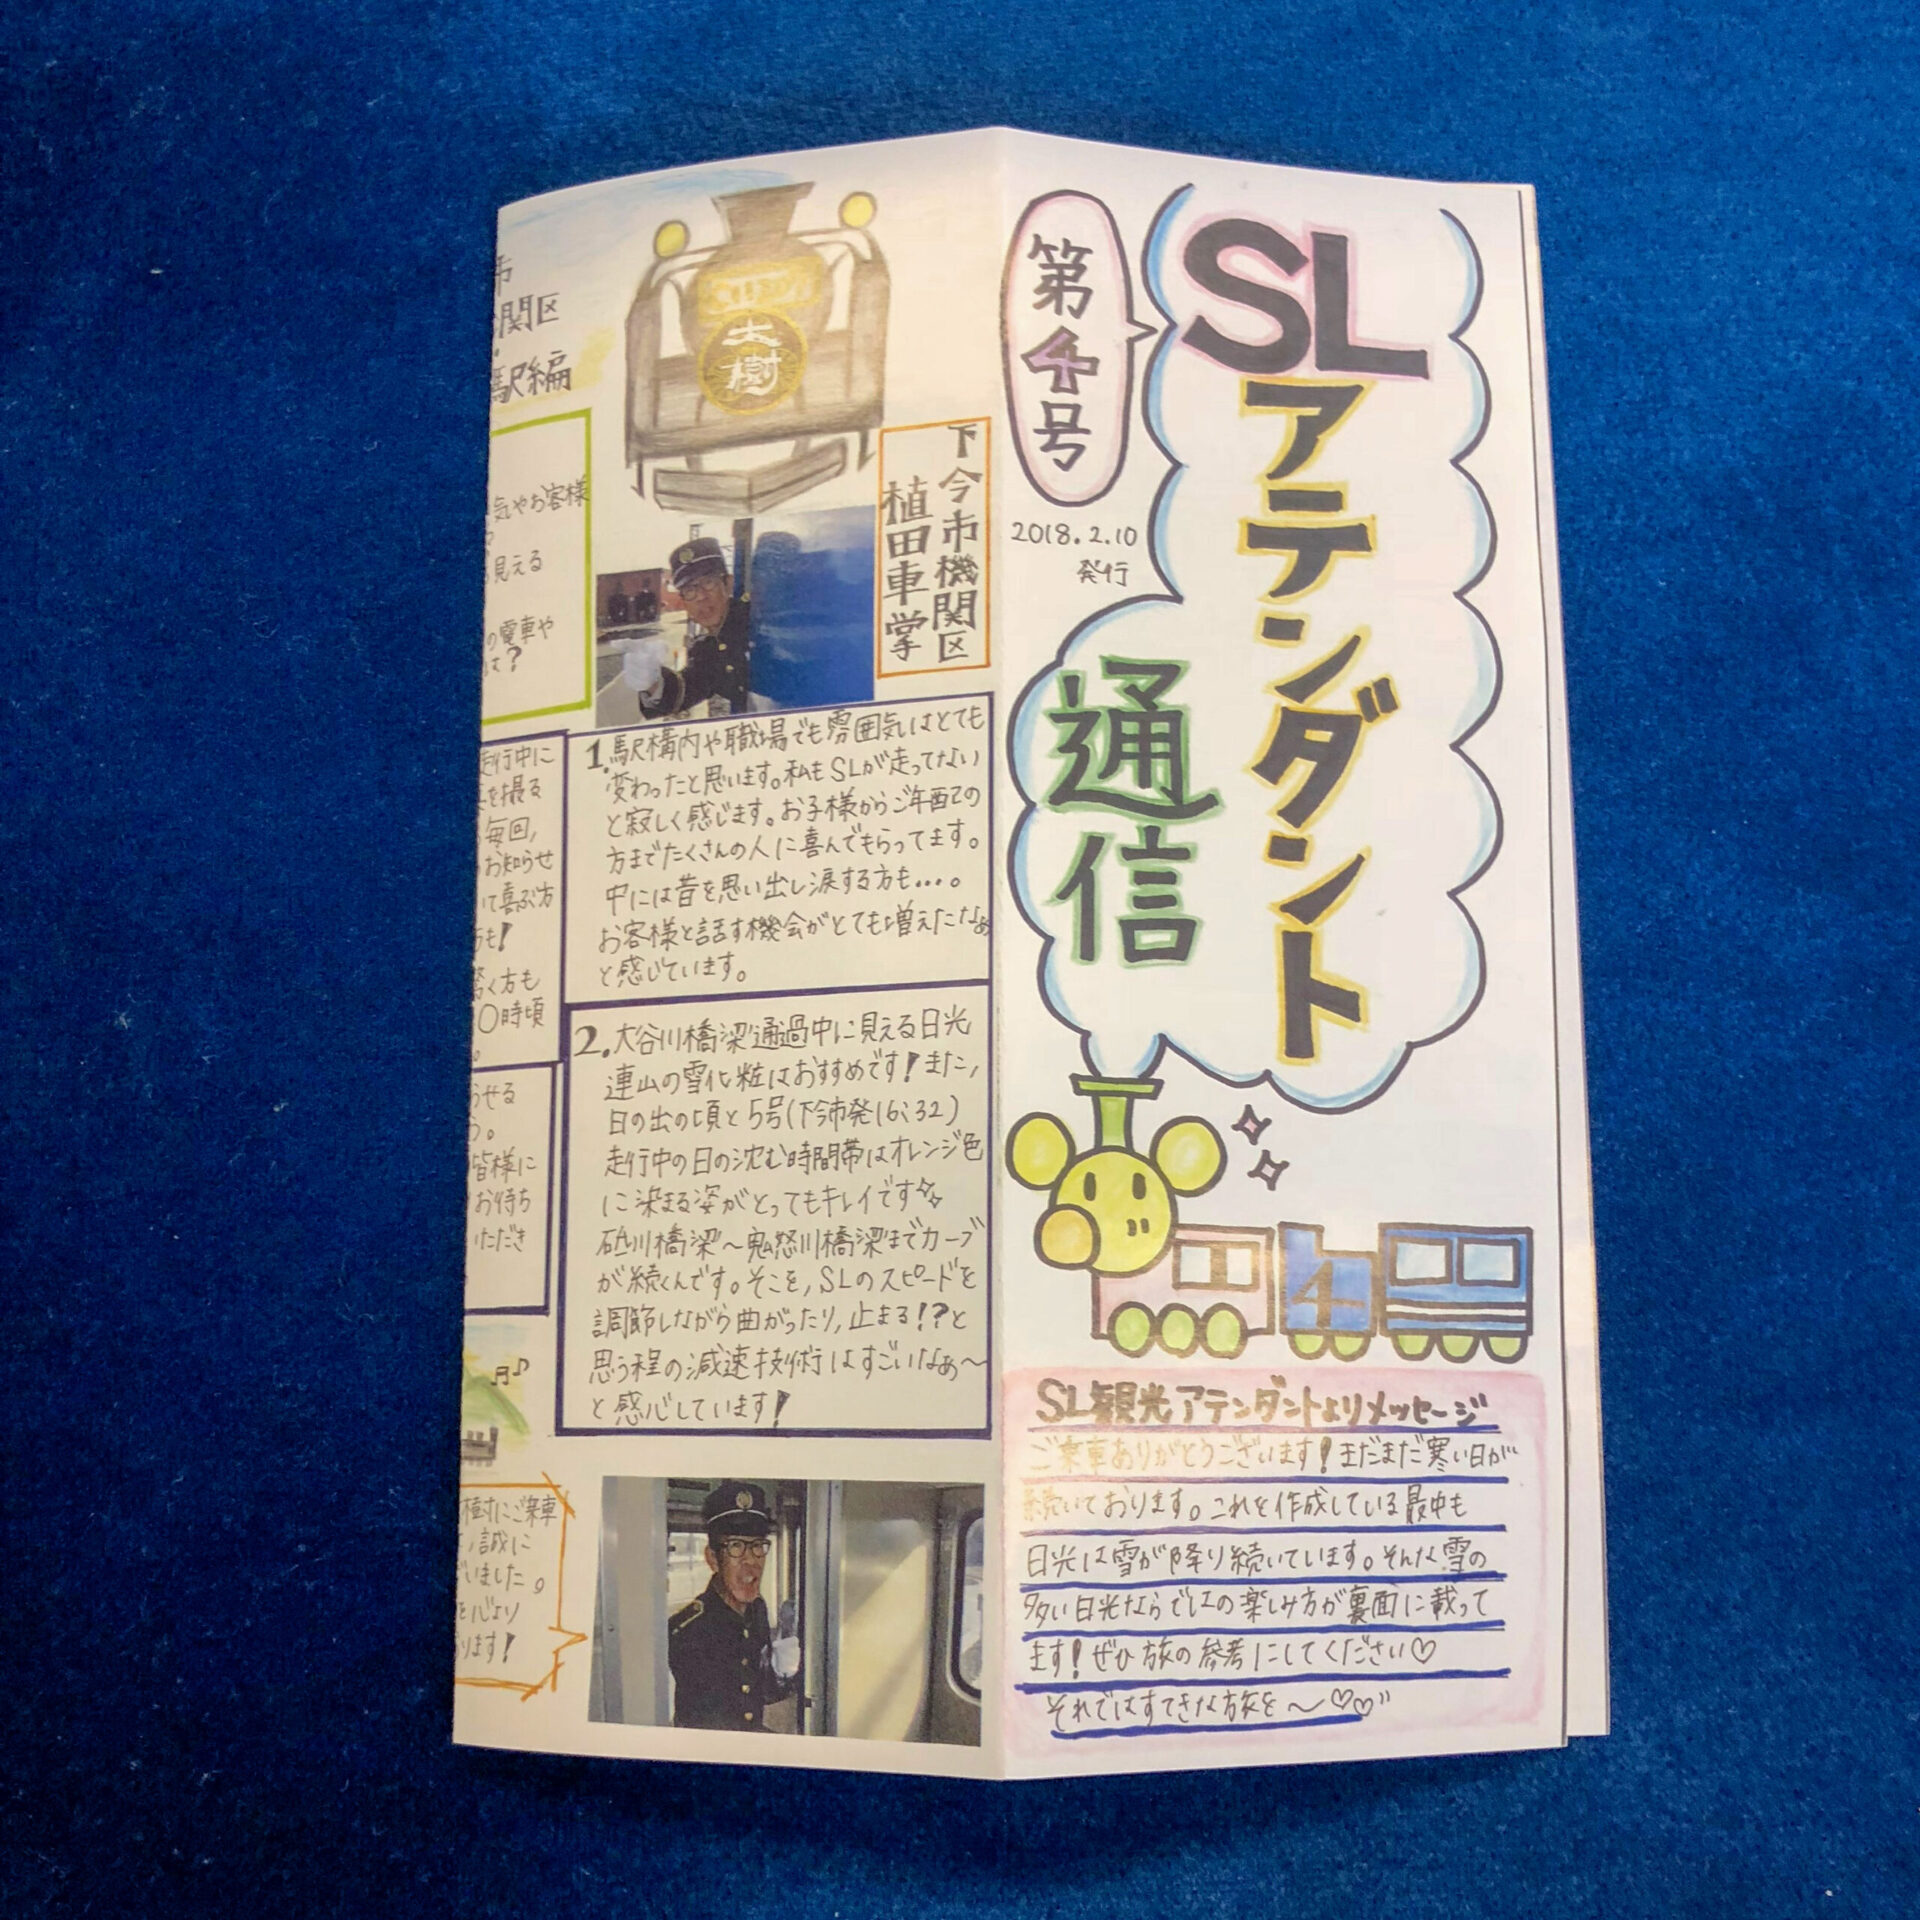 第4号
SL
アテンダント
通信
2018.2.10
発行
SL観光アテンダントよりメッセージ
ご乗車ありがとうございます!まだまだ寒い日が
続いております。これを作成している最中も
日光は雪が降り続いています。そんな雪の
多い日光ならではの楽しみ方が裏面に載って
ます!ぜひ旅の参考にしてください♡
それではすてきな旅を〜♡♡"
大樹
下今市機関区
植田車掌
1.駅構内や職場でも雰囲気はとても
変わったと思います。私もSLが走ってない
と寂しく感じます。お子様からご年配の
方までたくさんの人に喜んでもらってます。
中には昔を思い出し涙する方も…。
お客様と話す機会がとても増えたなぁ
と感じています。
2.大谷川橋梁通過中に見える日光
連山の雪化粧はおすすめです!また,
日の出の頃と5号(下今市発16:32)
走行中の日の沈む時間帯はオレンジ色
に染まる姿がとってもキレイです
砥川橋梁〜鬼怒川橋梁までカーブ
が続くんです。そこを,SLのスピードを
調節しながら曲がったり,止まる!?と
思う程の減速技術はすごいなぁ〜
と感心しています!
市
関区
駅編
気やお客様
見える
の電車や
は?
走行中に
を撮る
毎回,
お知らせ
て喜ぶ方
も!
驚く方も
0時頃
。
せる
。
皆様に
お待ち
いただき
樹にご乗車
誠に
いました。
心より
ります!